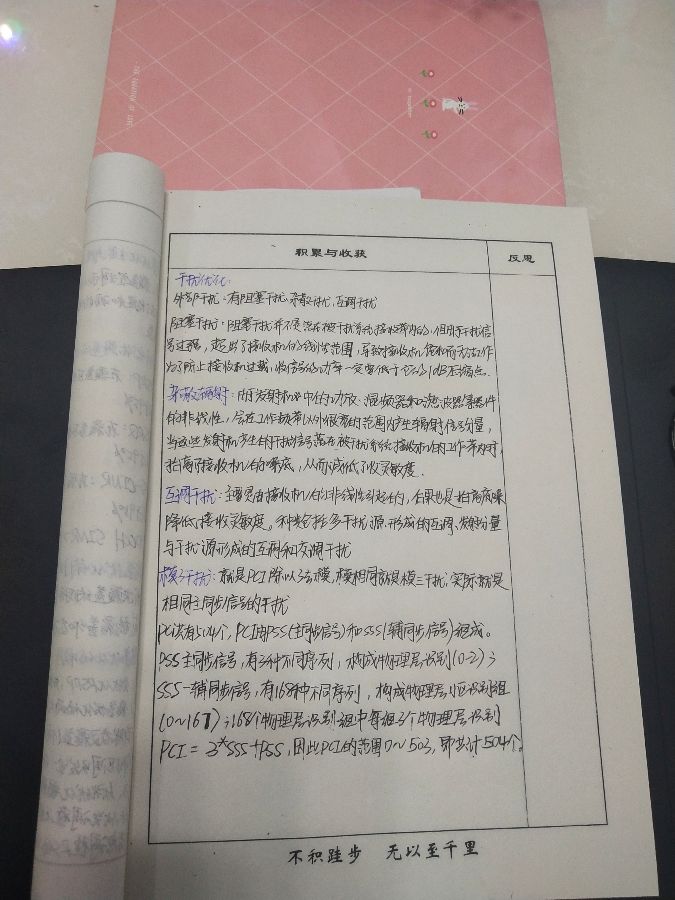 积累与收获
反思
干扰优化:
外部干扰:有阻塞干扰、杂散干扰、互调干扰
阻塞干扰:阻塞干扰并不是落在被干扰系统接收带内的,但由于干扰信
号过强,超出了接收机的线性范围,导致接收机饱和而无法工作
为了防止接收机过载,收信号的功率一定要低于它的1dB压缩点.
杂散辐射:由于发射机中的功放、混频器和滤波器等器件
的非线性,会在工作频带以外很宽的范围内产生辐射信号分量,
当这些发射机产生的干扰信号落在被干扰系统接收机的工作带内时,
抬高了接收机的噪底,从而减低了收灵敏度.
互调干扰:主要是由接收机的非线性引起的,后果也是抬高底噪
降低接收灵敏度。种类包括多干扰源形成的互调、发射分量
与干扰源形成的互调和交调干扰
模3干扰:就是PCI除以3去模,模相同就是模三干扰,实际就是
相同主同步信号的干扰
PCI共有504个,PCI由PSS(主同步信号)和SSS(辅同步信号)组成。
PSS主同步信号,有3种不同序列,构成物理层识别(0-2);
SSS-辅同步信号,有168种不同序列,构成物理层小区识别组
(0~167);168个物理层识别组中每组3个物理层识别
PCI = 3*SSS+PSS,因此PCI的范围0~503,即共计504个.
不积跬步 无以至千里